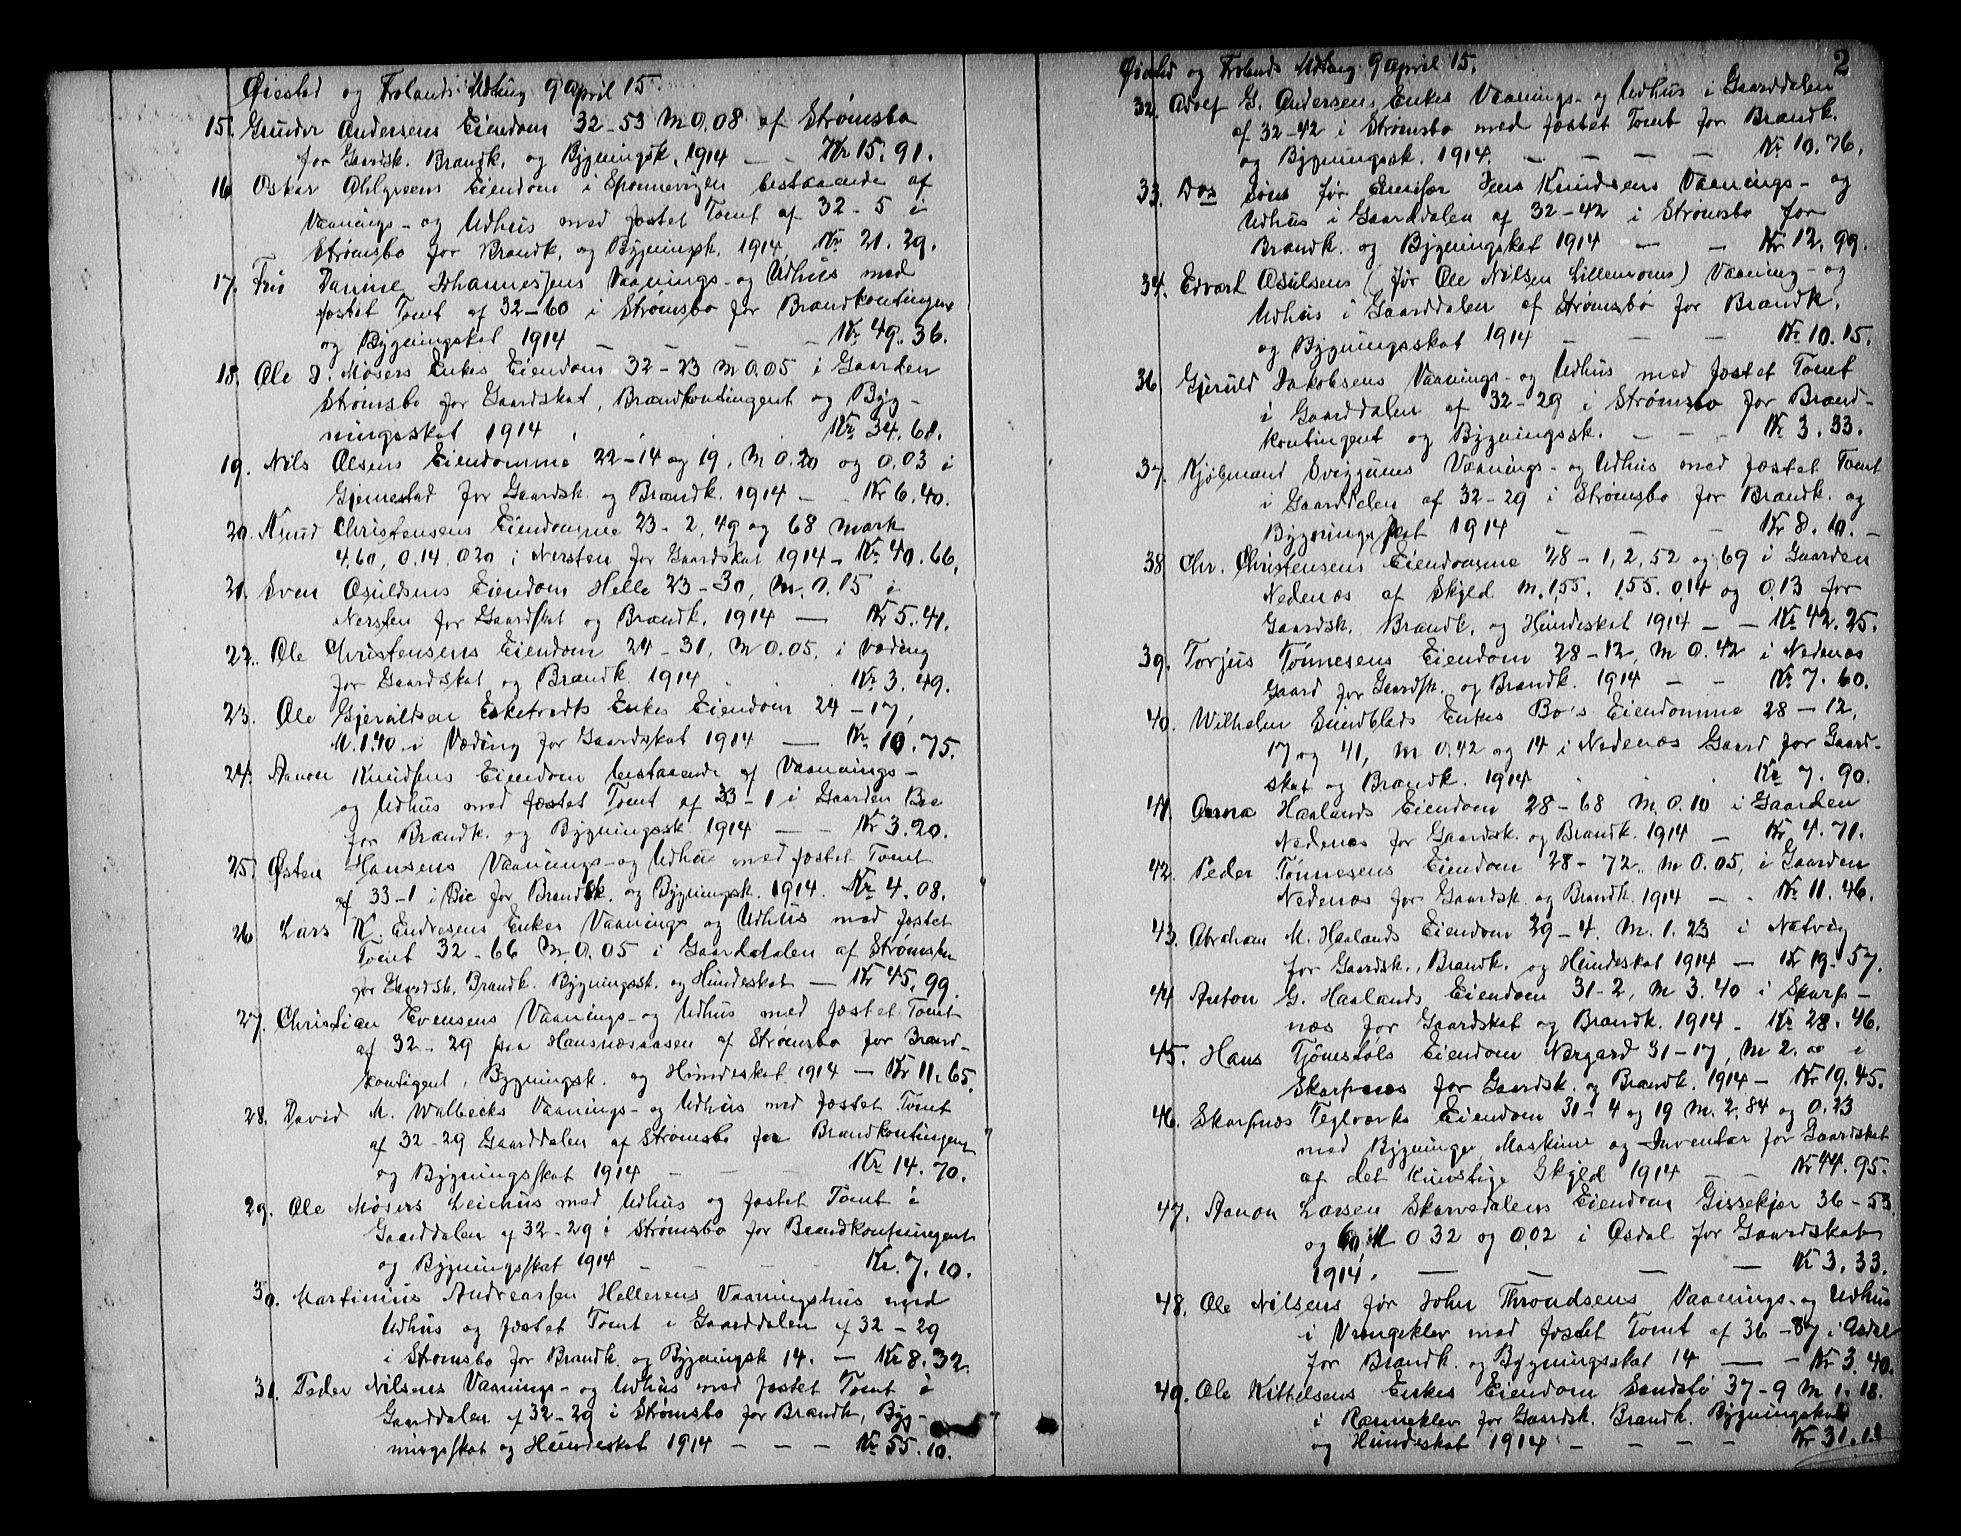 Øiestad og Frolands Udtræg 9 April 15.
15. Gunder Andersens Eiendom 32-53 M 0,08 af Strømsbo
for Gaardsk. Brandk. og Bygningsk. 1914 — — Kr 15.91.
16 Oskar Ahlgreens Eiendom i Spornevigen bestaaende af
Vaanings- og Udhus med fæstet Tomt af 32-5 i
Strømsbo for Brandk. og Bygningsk. 1914 Kr 21.29.
17. Fru Danine Johannesens Vaanings- og Udhus med
fæstet Tomt af 32-60 i Strømsbo for Brandkontingent
og Bygningskat 1914 — — — — Kr 49.36.
18. Ole J. Mosers Enkes Eiendom 32-23 M 0.05 i Gaarden
Strømsbo for Gaardskat, Brandkontingent og Byg-
ningsskat 1914 Kr 34.68.
19. Nils Olsens Eiendomme 22-14 og 19, M 0.20 og 0.03 i
Gjennestad for Gaardsk. og Brandk. 1914 — - Kr 6.40.
20. Knud Christensens Eiendomme 23-2, 49 og 68 mark
4,60, 0.14 0.20 i Nersten for Gaardskat 1914 - Kr 40.66.
21. Sven Osuldsens Eiendom Helle 23-30, M. 0.15 i
Nersten for Gaardskat og Brandk. 1914 — Kr 5.41.
22. Ole Christensens Eiendom 24-31, M 0.05, i Væding
for Gaardskat og Brandk. 1914 Kr 3.49.
23. Ole Gjeruldsen Esketvedts Enkes Eiendom 24-17,
M. 1.40 i Væding for Gaardskat 1914 — Kr 10.75.
24. Aanon Knudsens Eiendom bestaaende af Vaanings-
og Udhus med fæstet Tomt af 33-1 i Gaarden Bie
for Brandk. og Bygningssk. 1914 — - Kr 3.20.
25. Østen Hansens Vaanings- og Udhus med fæstet Tomt
af 33-1 i Bie for Brandk. og Bygningsk. 1914. Kr 4.08.
26 Lars K. Endresens Enkes Vaanings og Udhus med fæstet
Tomt 32-66 M. 0.05 i Gaarddalen af Strømsbo
for Gaardsk. Brandk. Bygningssk. og Hundeskat — Kr 45.99.
27. Christian Evensens Vaanings- og Udhus med fæstet Tomt
af 32-29 paa Hansnæsaasen af Strømsbo for Brand-
kontigent, Bygningsk. og Hundeskat 1914 — Kr 11.65.
28. David M. Walbecks Vaanings- og Udhus med fæstet Tomt
af 32-29 Gaarddalen af Strømsbo for Brandkontingent
og Bygningsskat 1914 — — — Kr 14.70.
29. Ole Mosers Leiehus med Udhus og fæstet Tomt i
Gaarddalen af 32-29 i Strømsbo for Brandkontingent
og Bygningsskat 1914 — — — Kr. 7.10.
30. Martinius Andreassen Hellerens Vaaningshus med
Udhus og fæstet Tomt i Gaarddalen af 32-29
i Strømsbo for Brandk. og Bygningsk 14. — Kr 8.32.
31. Peder Nilsens Vaanings- og Udhus med fæstet Tomt i
Gaarddalen af 32-29 i Strømsbo for Brandk, Byg-
ningsskat og Hundeskat 1914 — — — Kr 55.10.
2
Øiestad og Frolands Udtræg 9 April 15.
32. Adolf G. Andersens Enkes Vaanings- og Udhus i Gaarddalen
af 32-42 i Strømsbo med fæstet Tomt for Brandk.
og Bygningssk. 1914. — — — — Kr 10.76.
33. Dos før Jens Knudsens Vaanings- og
Udhus i Gaarddalen af 32-42 i Strømsbo for
Brandk. og Bygningskat 1914 — - Kr 12.99.
34. Edvart Osulsens (før Ole Nilsen Lillemoens) Vaaning- og
Udhus i Gaarddalen af Strømsbo for Brandk.
og Bygningsskat 1914 — — — Kr. 10.15.
36. Gjeruld Jakobsens Vaanings- og Udhus med fæstet Tomt
i Gaarddalen af 32-29 i Strømsbo for Brand-
kontingent og Bygningssk. — — - Kr 3.33.
37. Kjølmand Vaanings- og Udhus med fæstet Tomt
i Gaarddalen af 32-29 i Strømsbo for Brandk. og
Bygningsskat 1914 — — - Kr 8.10.-
38 Chr. Christensens Eiendomme 28-1, 2, 52 og 69 i Gaarden
Nedenæs af Skyld M. 1.55. 1,55. 0,14 og 0,13 for
Gaardsk. Brandk. og Hundeskat 1914 — — Kr 42.25.
39. Torjus Tønnesens Eiendom 28-12, M 0.42 i Nedenæs
Gaard for Gaardsk. og Brandk. 1914 — — Kr 7.60.
40. Wilhelm Sundblads Enkes Bo's Eiendomme 28-12,
17 og 41, M 0.42 og 14 i Nedenæs Gaard for Gaard-
skat og Brandk. 1914 Kr 7.90.
41. Anna Haalands Eiendom 28-68 M. 0.10 i Gaarden
Nedenæs for Gaardsk. og Brandk. 1914 — Kr. 4.71.
42. Peder Tønnesens Eiendom 28-72. M 0.05, i Gaarden
Nedenæs for Gaardsk. og Brandk. 1914 — - Kr 11.46.
43. Abraham M. Haalands Eiendom 29-4. M. 1.23 i Natvig
for Gaardsk., Brandk. og Hundeskat 1914 — Kr 19.57.
44 Anton G. Haalands Eiendom 31-2, M 3.40 i Skarps-
næs for Gaardskat og Brandk. 1914 - Kr 28.46.
45. Hans Tjømstøls Eiendom Nergard 31-17, M 2. i
Skarpnæs for Gaardsk. og Brandk. 1914 — Kr 19.45.
46. Skarpnæs Teglværks Eiendom 31-4 og 19 M. 2.84 og 0.23
med Bygninger Maskiner og Inventar for Gaardskat
af det Kunstige Skyld 1914 — — Kr 44.95.
47. Aanon Larsen Skarvedalens Eiendom Gissekjær 36-53
og 60 M 0 32 og 0,02 i Osdal for Gaardskat
1914. — — — — Kr 3.33.
48. Ole Nilsens før John Throndsens Vaanings- og Udhus
i Vrengeklev med fæstet Tomt af 36-87 i Osdal
for Brandk. og Bygningsskat 14 — - Kr 3.40.
49. Ole Kittelsens Enkes Eiendom Sandstø 37-9 M 1.18.
i Ranneklev for Gaardsk. Brandk. Bygningskat
og Hundeskat 1914 — — — — Kr 31.18